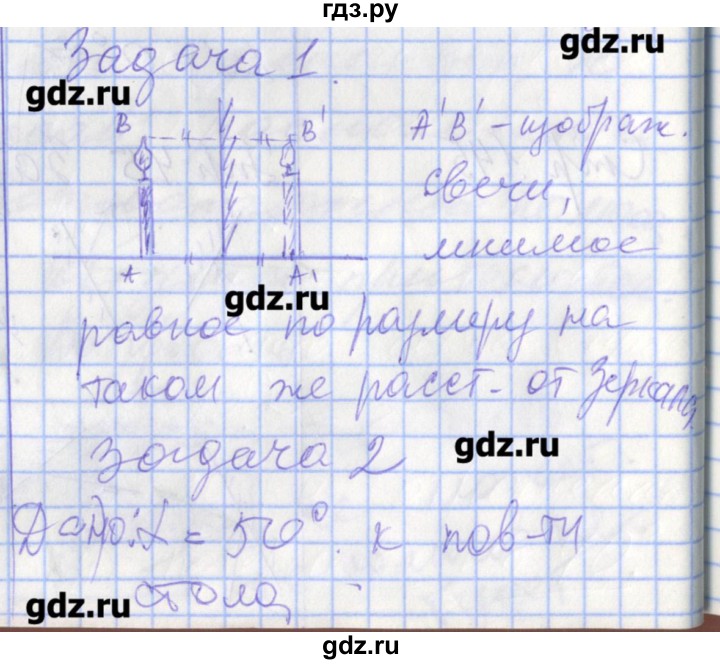 гдз.ру
Задача 1.
gdz.ru
gdz.ru
B B' A'B' - изображ.
свечи,
мнимое
A A'
gdz.ru
равное по размеру на
таком же расст. от зеркала.
Задача 2
gdz.ru
Дано: α = 50°. к пов-ти
стола
gdz.ru
gdz.ru
gdz.ru